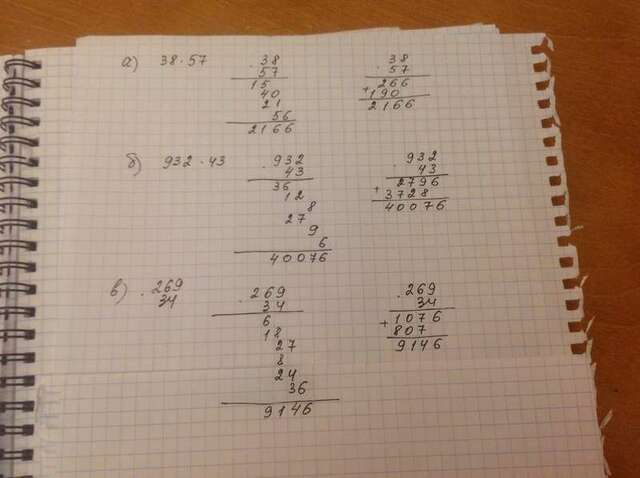 а) 38·57
·38
57
15
40
21
56
2166
·38
57
266
+190
2166
б) 932·43
·932
43
36
12
8
27
9
6
40076
·932
43
2796
+3728
40076
в) ·269
34
·269
34
6
18
27
8
24
36
9146
·269
34
+1076
807
9146